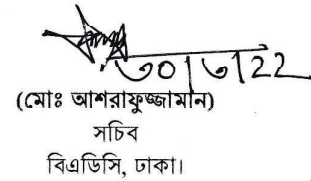 ৩০|৩|22
(মোঃ আশরাফুজ্জামান)
সচিব
বিএডিসি, ঢাকা।